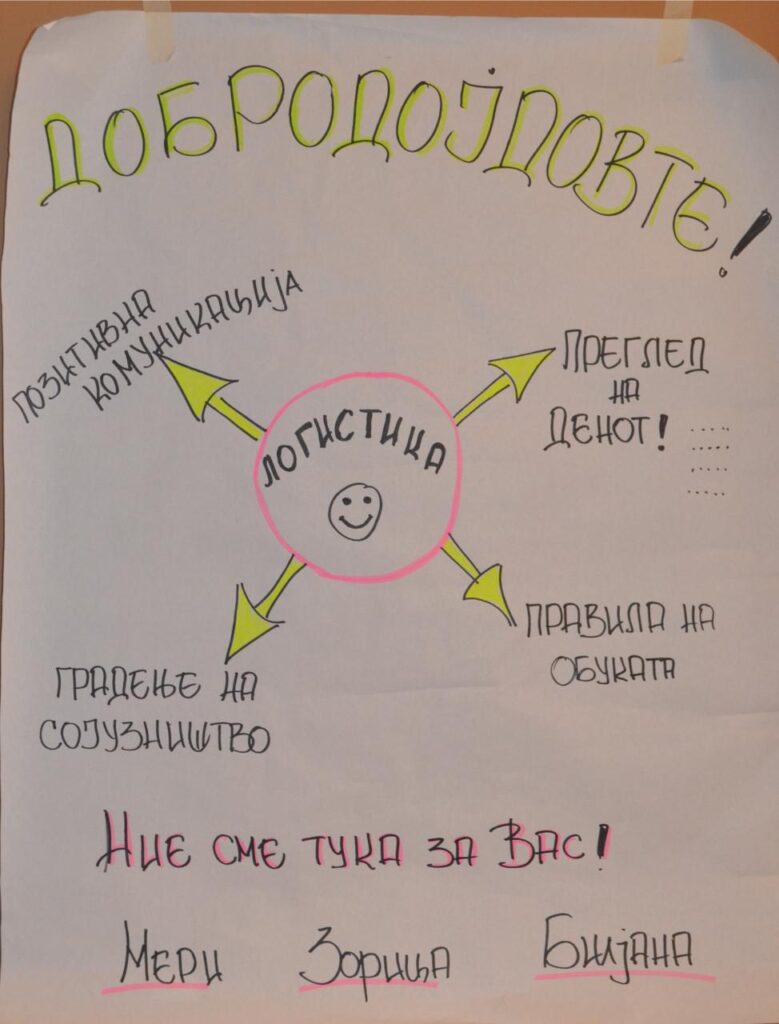 ДОБРОДОЈДОВТЕ!
ПОЗИТИВНА
КОМУНИКАЦИЈА
ПРЕГЛЕД
НА
ДЕНОТ!
ЛОГИСТИКА
ГРАДЕЊЕ НА
СОЈУЗНИШТВО
ПРАВИЛА НА
ОБУКАТА
НИЕ СМЕ ТУКА ЗА ВАС!
МЕРИ ЗОРИЦА БИЛЈАНА